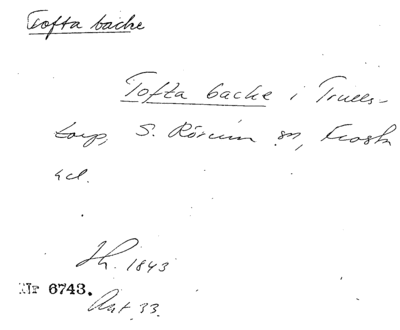 Tofta backe
Tofta backe i Trulls-
torp, S. Rörum sn, Frosta
hd.
1843
Nr 6743.
Ant 33.